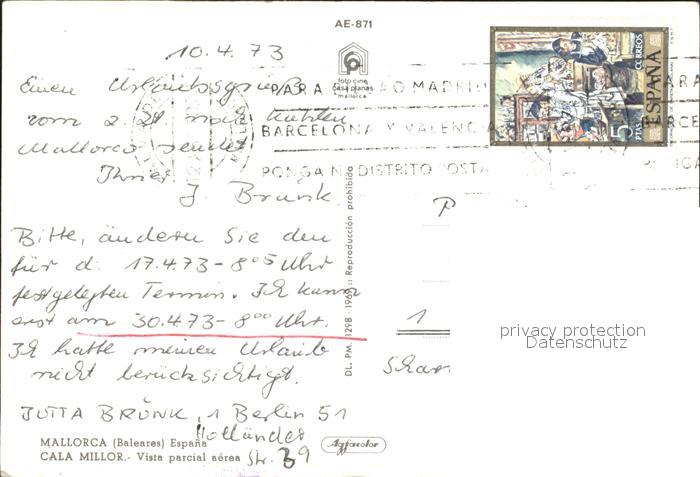 AE-871
10.4.73
foto cine
casa planas
mallorca
CORREOS
ESPAÑA
5
PTAS
Einen Urlaubsgruß
vom z. Zt noch kühlen
Mallorca sendet
Ihnen
J. Brünk.
PARA MADRID
BARCELONA Y VALENCIA
PONGA DISTRITO POSTAL
Bitte, ändern Sie den
für d. 17.4.73 - 8⁰⁵ Uhr
festgelegten Termin. Ich kann
erst am 30.4.73 - 8⁰⁰ Uhr.
Ich hatte meinen Urlaub
nicht berücksichtigt.
JUTTA BRÜNK, 1 Berlin 51
Holländer
Str. 39
MALLORCA (Baleares) España
CALA MILLOR.- Vista parcial aérea
Agfacolor
DL. PM. 1298 - 1969 :: Reproducción prohibida
P
1
Schar
privacy protection
Datenschutz